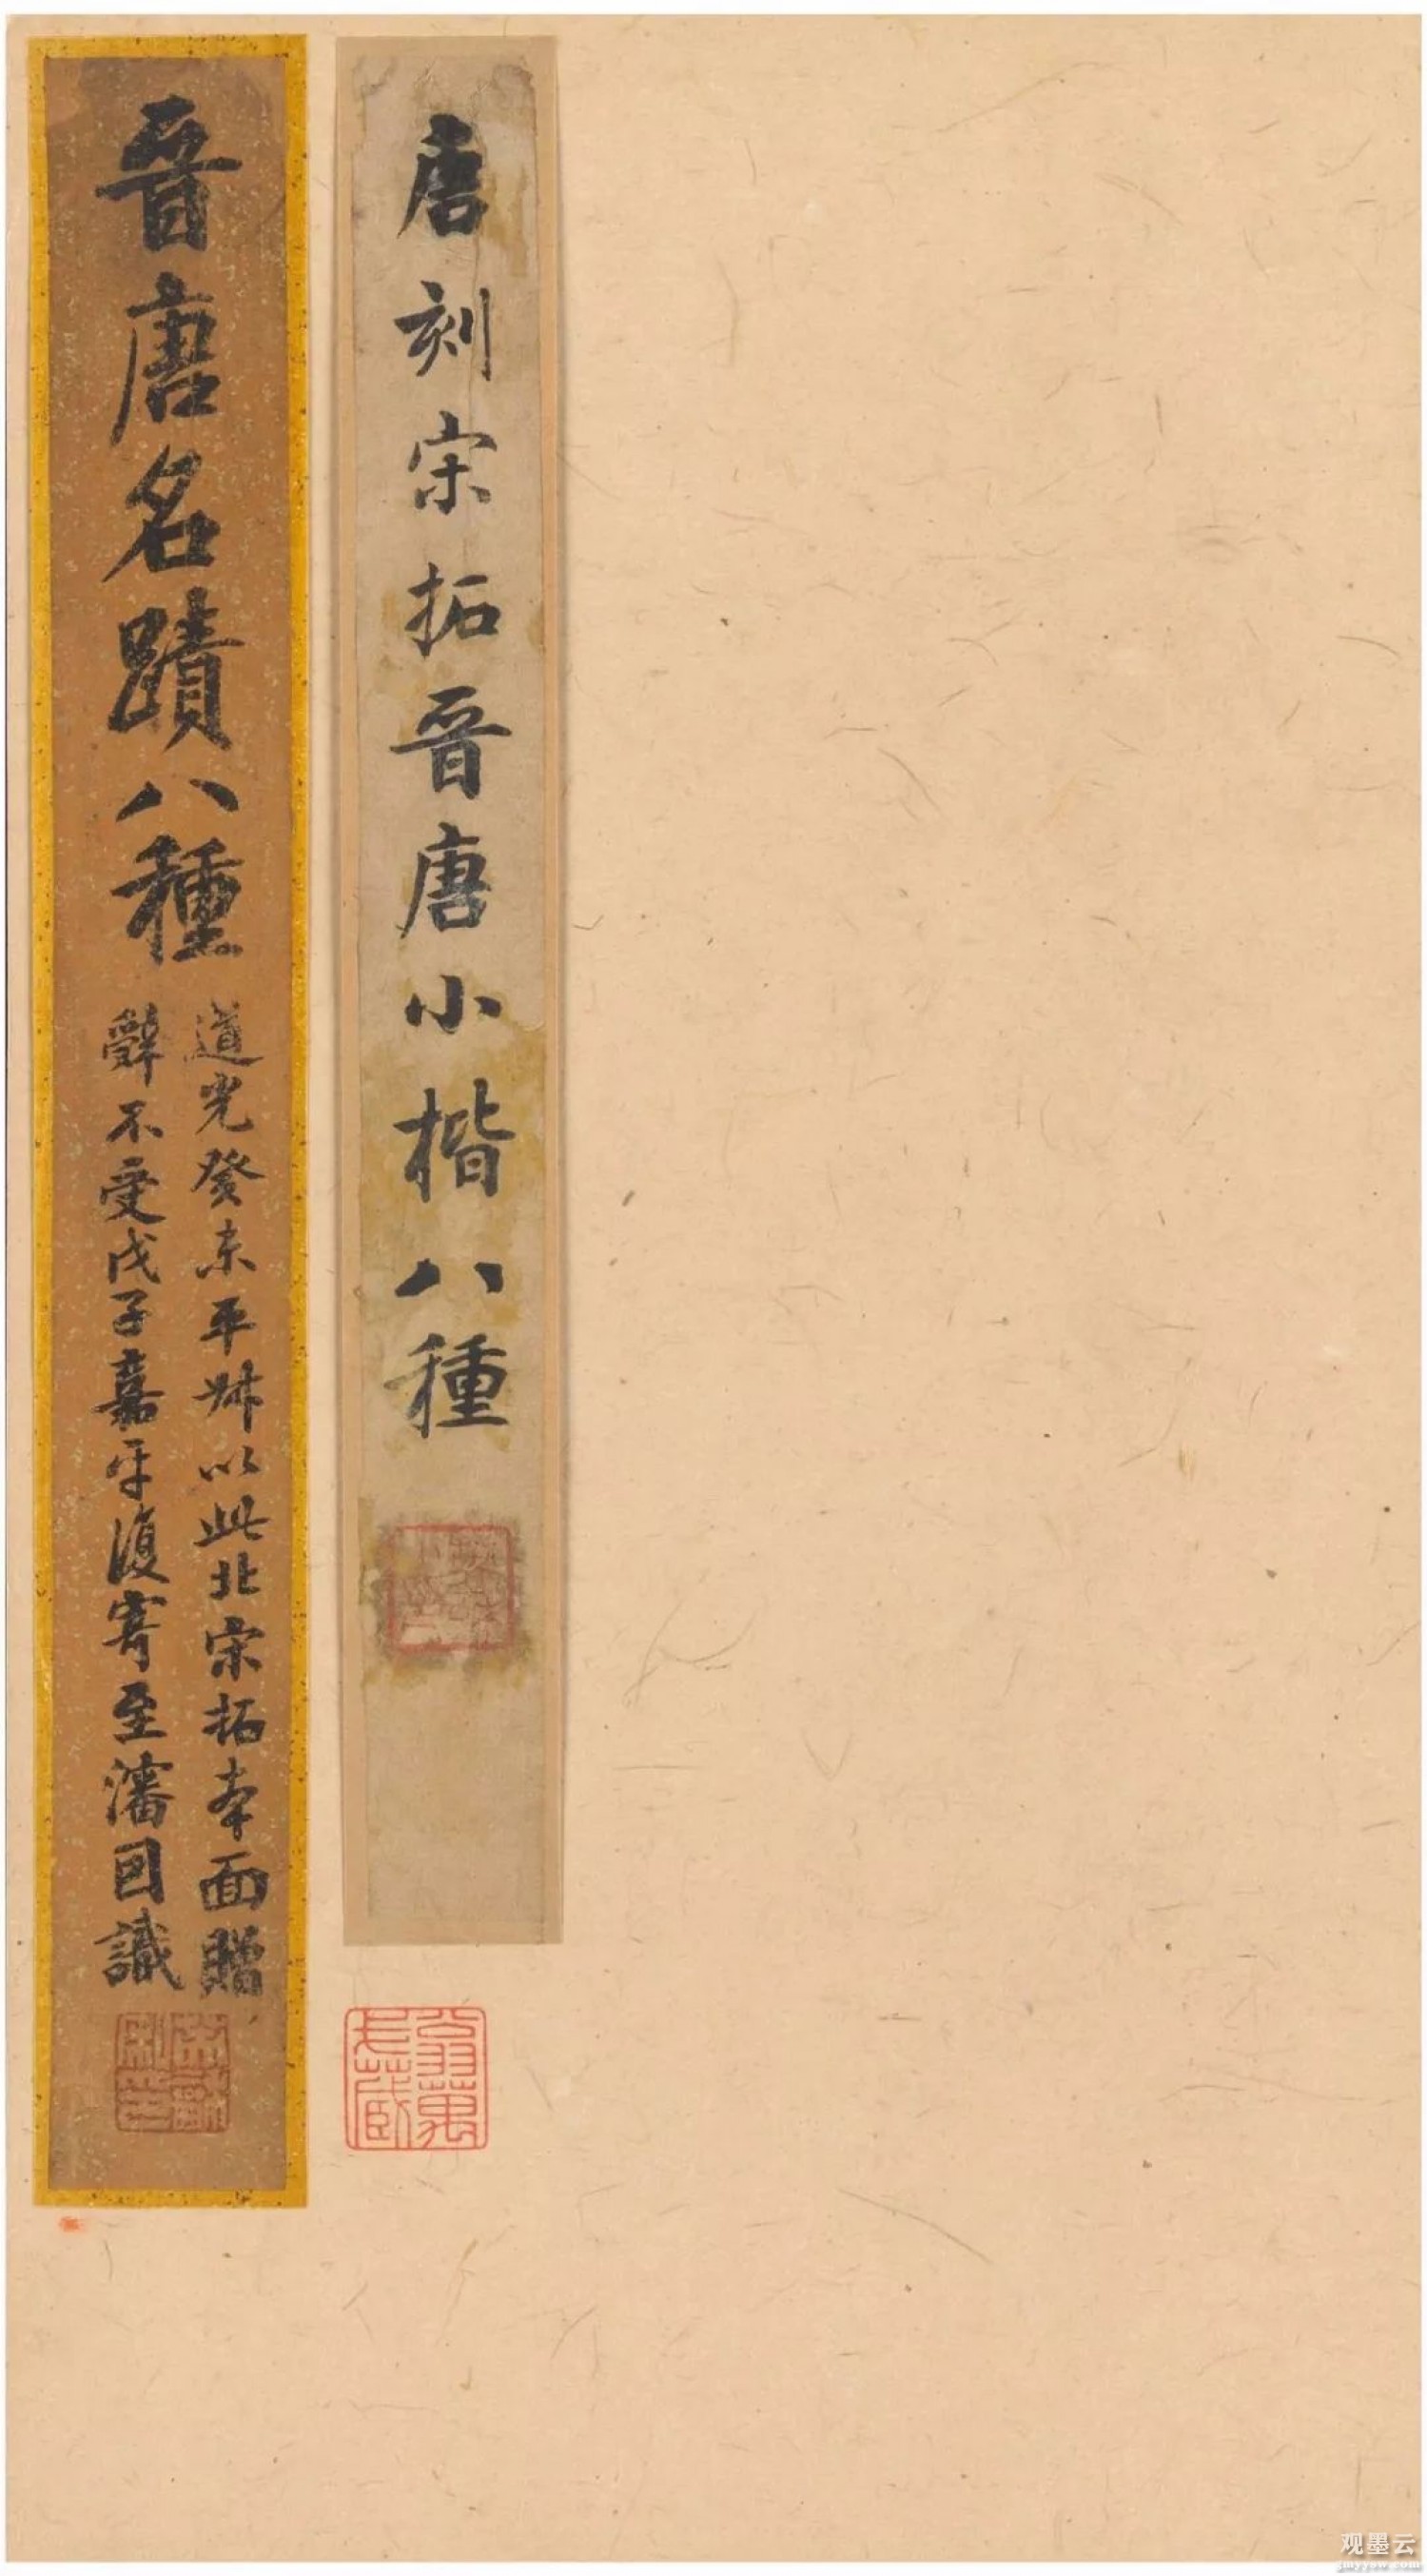 唐刻宋拓晋唐小楷八種
晋唐名蹟八種
道光癸未平叔以此北宋拓本面贈
辭不受戊子嘉平復寄至瀋因識
翁萬戈藏
观墨云